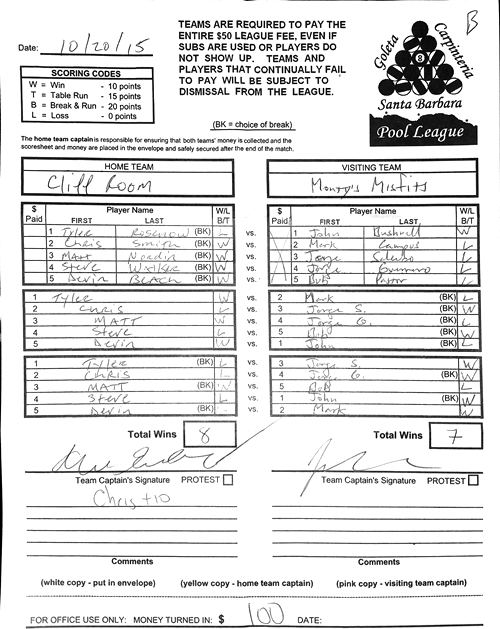 B
Date: 10/20/15
TEAMS ARE REQUIRED TO PAY THE
ENTIRE $50 LEAGUE FEE, EVEN IF
SUBS ARE USED OR PLAYERS DO
NOT SHOW UP. TEAMS AND
PLAYERS THAT CONTINUALLY FAIL
TO PAY WILL BE SUBJECT TO
DISMISSAL FROM THE LEAGUE.
Goleta Carpinteria
8
Santa Barbara
Pool League
SCORING CODES
W = Win - 10 points
T = Table Run - 15 points
B = Break & Run - 20 points
L = Loss - 0 points
(BK = choice of break)
The home team captain is responsible for ensuring that both teams' money is collected and the
scoresheet and money are placed in the envelope and safely secured after the end of the match.
HOME TEAM VISITING TEAM
Cliff Room Monty's Misfits
$ Paid Player Name FIRST LAST W/L B/T $ Paid Player Name FIRST LAST W/L B/T
1 Tyler Rosenow (BK) L vs. 1 John Bushnell W
2 Chris Smith (BK) W vs. 2 Mark Campos L
3 Matt Nordin (BK) W vs. 3 Jorge L
4 Steve Walker (BK) W vs. 4 Jorge L
5 Devin Beach (BK) W vs. 5 Bob Pastor L
1 Tyler W vs. 2 Mark (BK) L
2 Chris L vs. 3 Jorge S. (BK) W
3 MATT W vs. 4 Jorge G. (BK) L
4 Steve L vs. 5 (BK) W
5 Devin W vs. 1 John (BK) L
1 Tyler (BK) L vs. 3 Jorge S. W
2 Chris (BK) L vs. 4 Jorge G. (BK) W
3 MATT (BK) W vs. 5 Bob L
4 Steve L vs. 1 John (BK) W
5 Devin (BK) L vs. 2 Mark W
Total Wins 8 Total Wins 7
Team Captain's Signature PROTEST Team Captain's Signature PROTEST
Chris +10
Comments Comments
(white copy - put in envelope) (yellow copy - home team captain) (pink copy - visiting team captain)
FOR OFFICE USE ONLY: MONEY TURNED IN: $ 100 DATE: